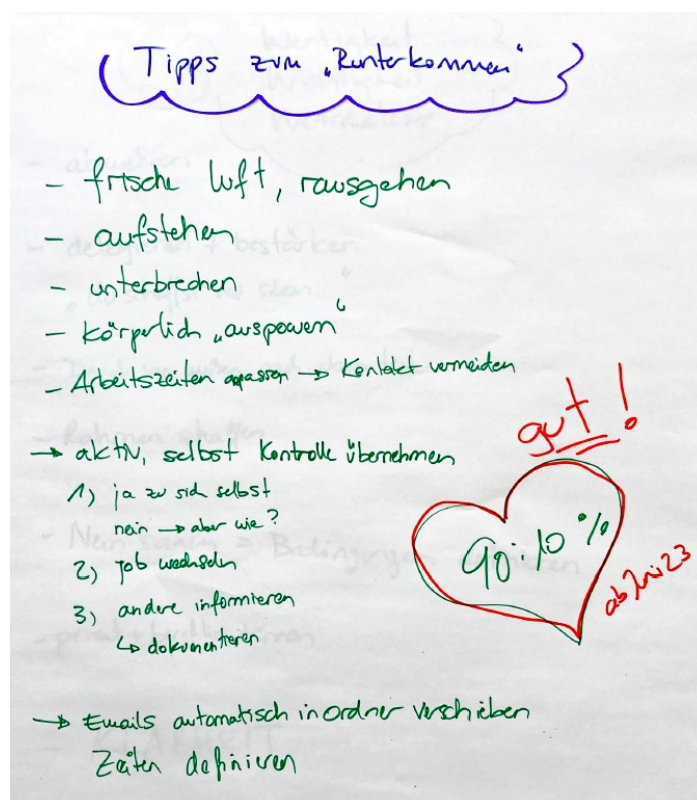 Tipps zum „Runterkommen“
- frische luft, rausgehen
- aufstehen
- unterbrechen
- körperlich „auspowern“
- Arbeitszeiten anpassen → Kontakt vermeiden
→ aktiv, selbst Kontrolle übernehmen
1) ja zu sich selbst
nein → aber wie?
2) Job wechseln
3) andere informieren
↳ dokumentieren
gut!
90:10 %
ab Juni 23
→ Emails automatisch in Ordner verschieben
Zeiten definieren